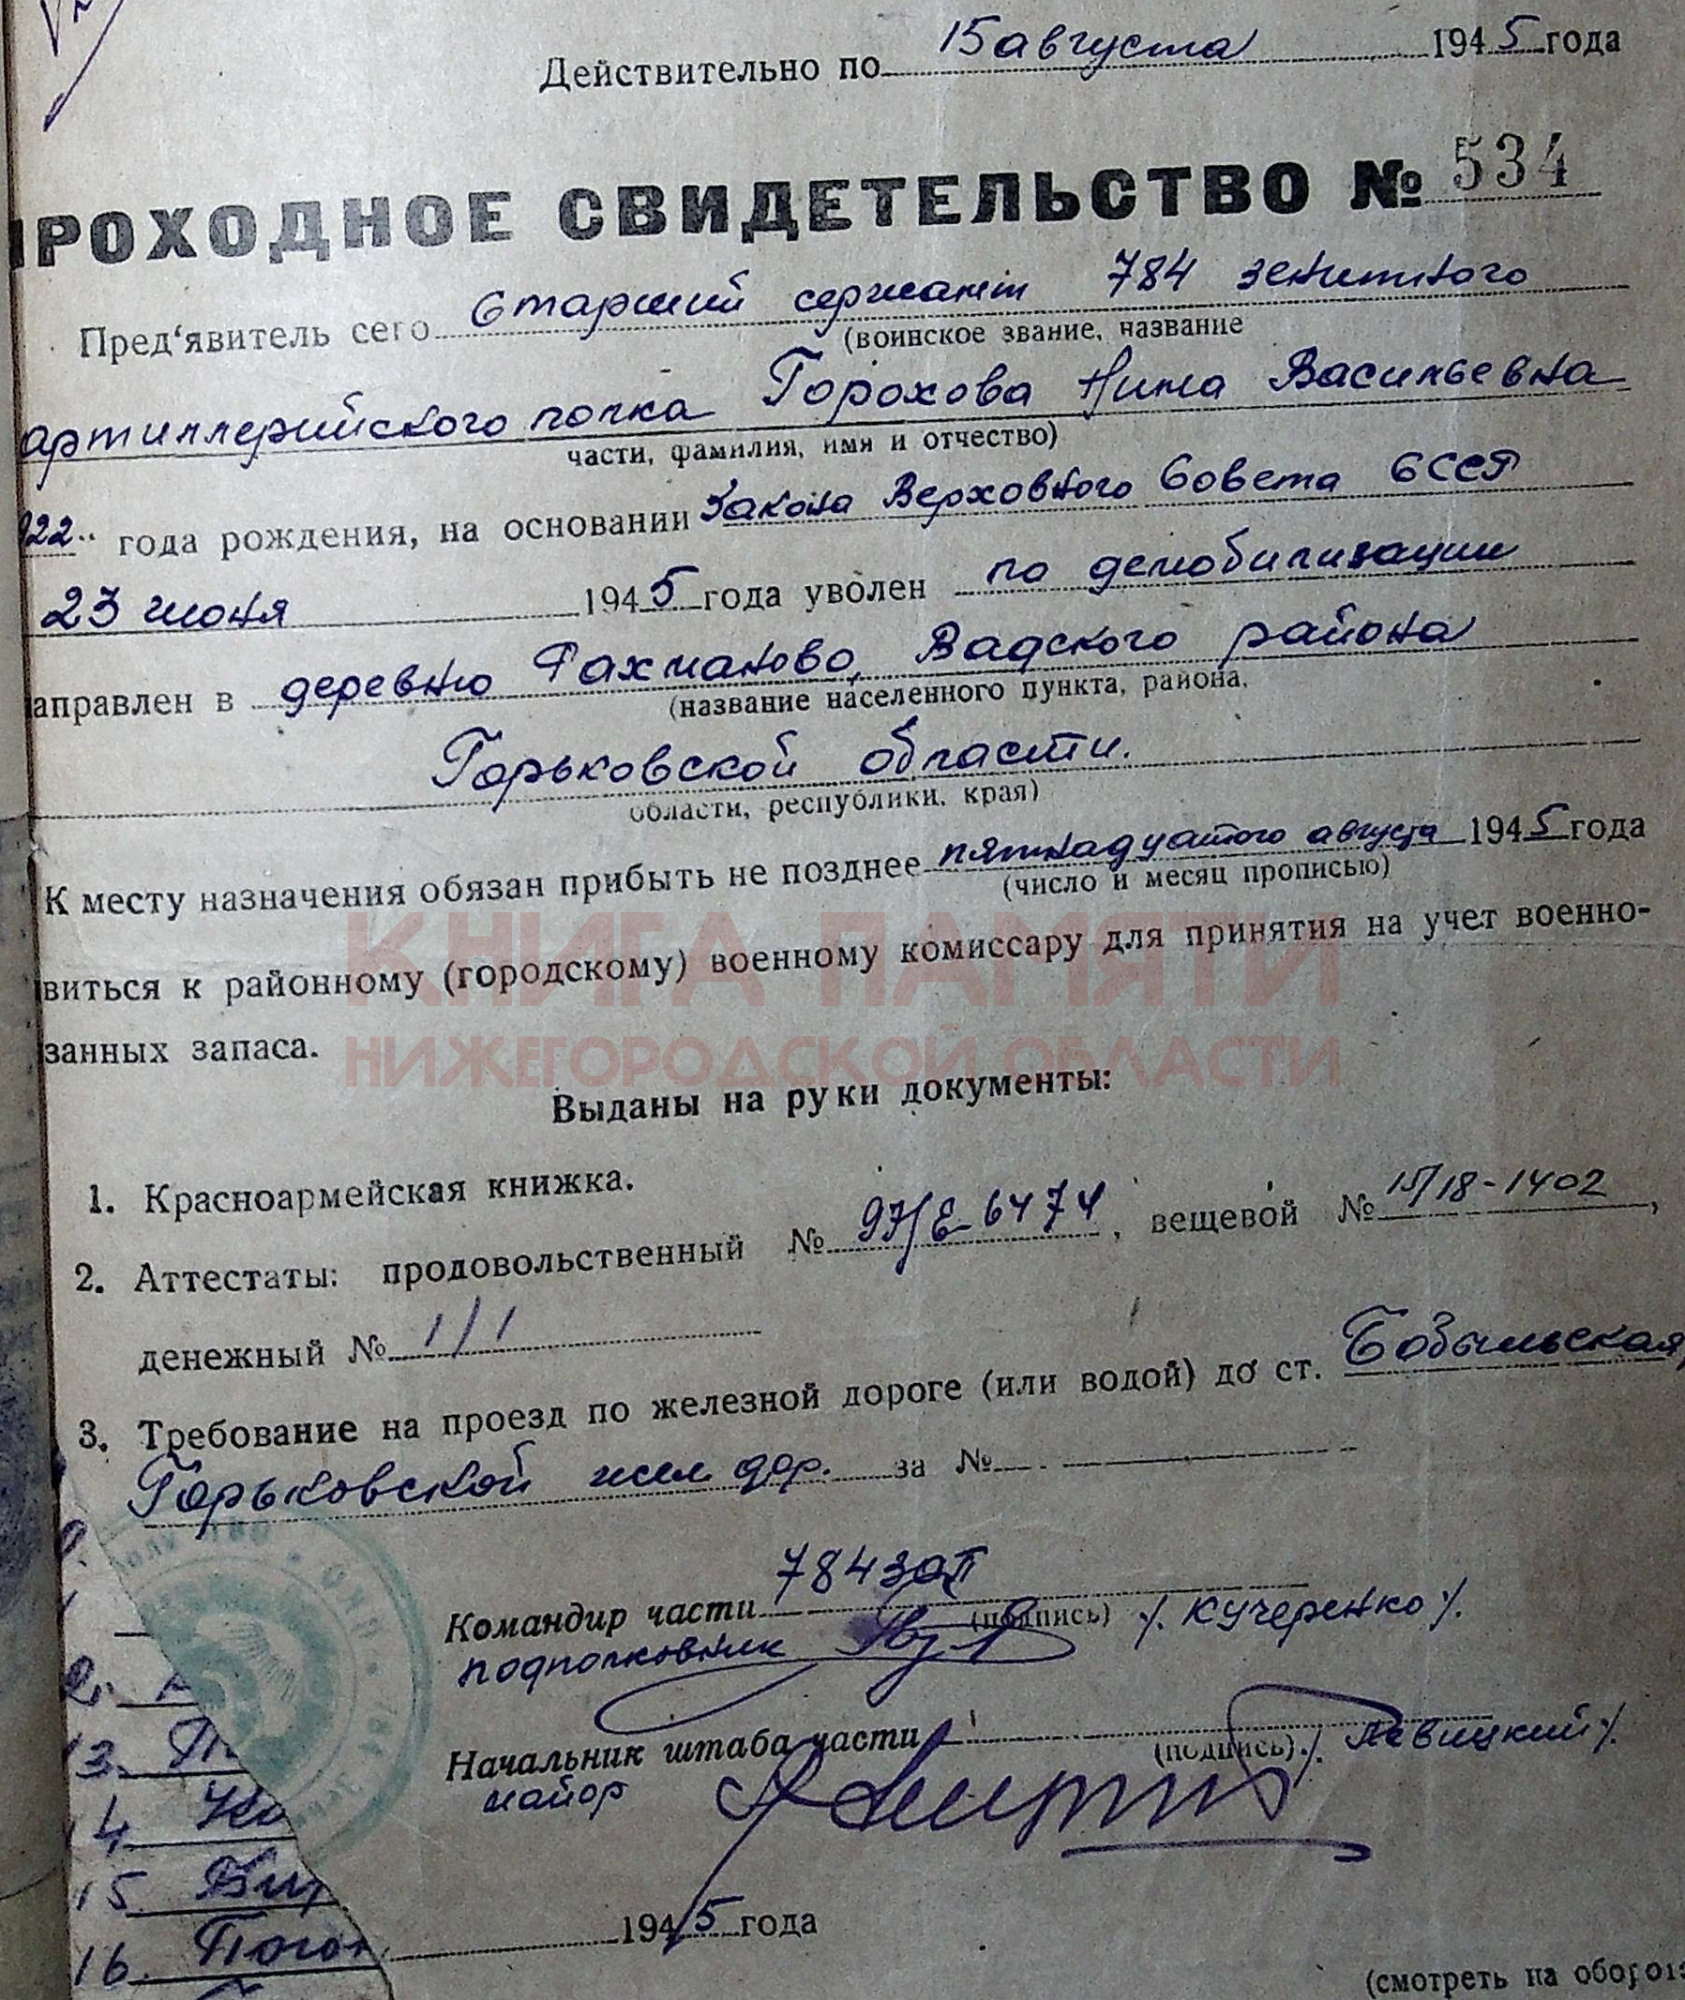 Действительно по 15 августа 1945 года
ПРОХОДНОЕ СВИДЕТЕЛЬСТВО № 534
Пред‘явитель сего Старший сержант 784 зенитного
(воинское звание, название
артиллерийского полка Горохова Нина Васильевна
части, фамилия, имя и отчество)
922 года рождения, на основании Закона Верховного Совета СССР
23 июня 1945 года уволен по демобилизации
аправлен в деревню Рахманово, Вадского района
(название населенного пункта, района,
Горьковской области.
области, республики, края)
К месту назначения обязан прибыть не позднее пятнадцатого августа 1945 года
(число и месяц прописью)
виться к районному (городскому) военному комиссару для принятия на учет военно-
занных запаса.
КНИГА ПАМЯТИ
НИЖЕГОРОДСКОЙ ОБЛАСТИ
Выданы на руки документы:
1. Красноармейская книжка.
2. Аттестаты: продовольственный № 97/Е-6474, вещевой № 15/18-1402,
денежный № 1/1
3. Требование на проезд по железной дороге (или водой) до ст. Бобыльская,
Горьковской жел. дор. за № —
Командир части 784 зап
(подпись)
подполковник /. Кучеренко/.
Начальник штаба части
(подпись). /. Левицкий/.
майор
13.
14.
15.
16. Погон
1945 года
(смотреть на оборот